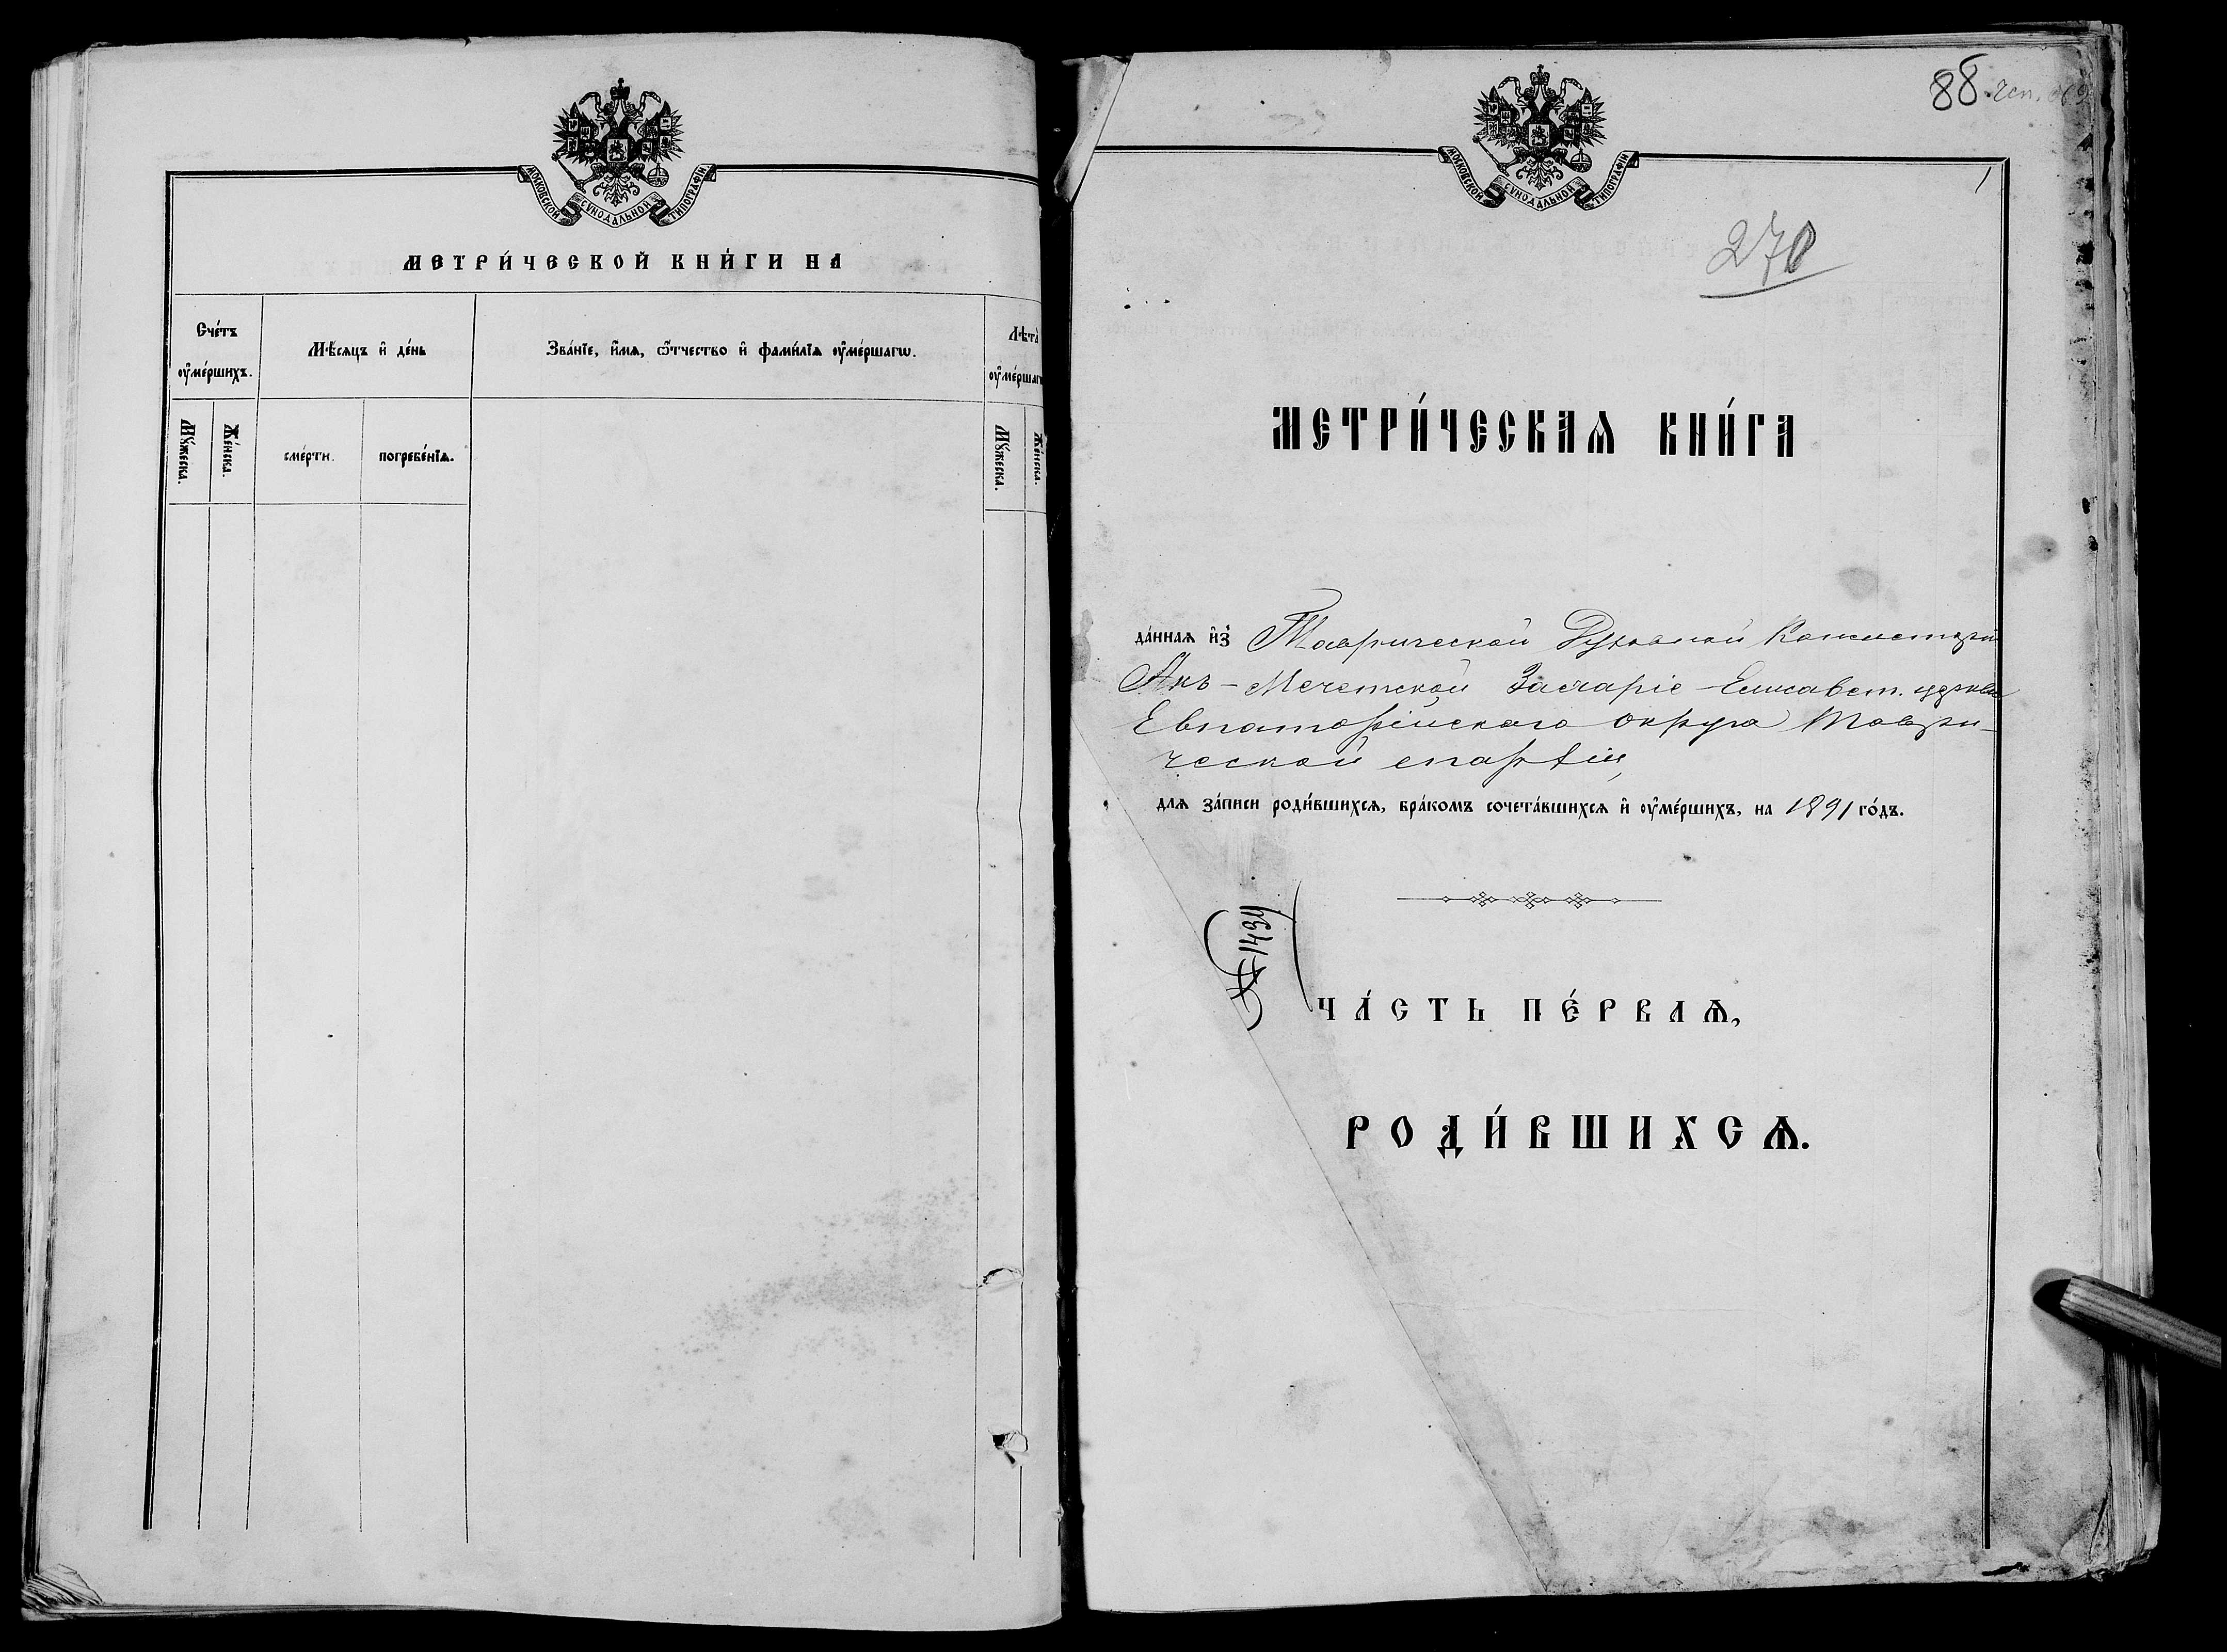 МОСКОВСКОЙ СѴНОДАЛЬНОЙ ТИПОГРАФІИ
МЕТРИ́ЧЕСКОЙ КНИ́ГИ НА
Сче́тъ ᲂу҆ме́ршихъ.
Мѣ́сяцъ и҆ де́нь
Зва́нїе, и҆́мѧ, ѻ҆́тчество и҆ фами́лїѧ ᲂу҆ме́ршагѡ.
Лѣта̀
Мꙋ́жеска.
Же́нска.
сме́рти.
погребе́нїѧ.
Мꙋ́жеска.
Же́нска.
88
МОСКОВСКОЙ СѴНОДАЛЬНОЙ ТИПОГРАФІИ
1
270
МЕТРИ́ЧЕСКАѦ КНИ́ГА
да́ннаѧ и҆з̾ Таврической Духовной Консисторіи
Акъ-Мечетской Захаріе-Елисавет. церкви
Евпаторійскаго округа Таври-
ческой епархіи,
длѧ за́писи роди́вшихсѧ, бра́комъ сочета́вшихсѧ и҆ ᲂу҆ме́ршихъ, на 1891 го́дъ.
ЧА́СТЬ ПЕ́РВАѦ,
РОДИ́ВШИХСѦ.